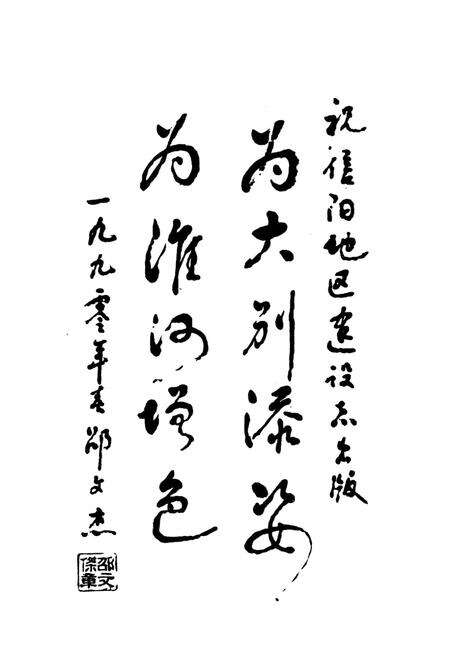 祝信阳地区建设志出版
为大别添姿
为淮河增色
一九九零年春 邵文杰
邵文傑章